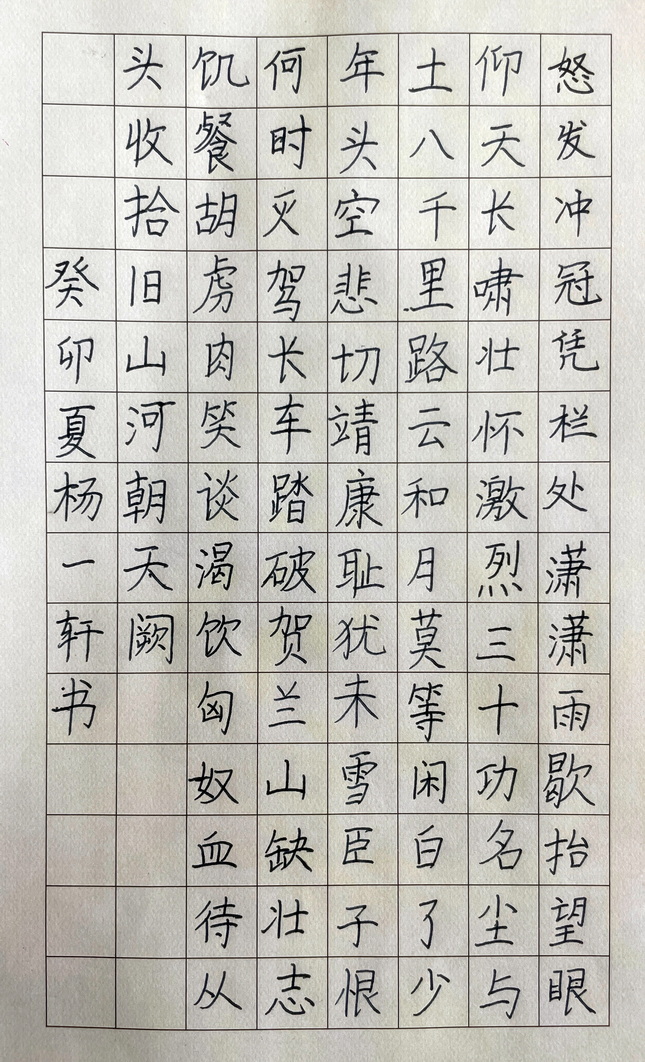 怒发冲冠凭栏处潇潇雨歇抬望眼
仰天长啸壮怀激烈三十功名尘与
土八千里路云和月莫等闲白了少
年头空悲切靖康耻犹未雪臣子恨
何时灭驾长车踏破贺兰山缺壮志
饥餐胡虏肉笑谈渴饮匈奴血待从
头收拾旧山河朝天阙
癸卯夏杨一轩书